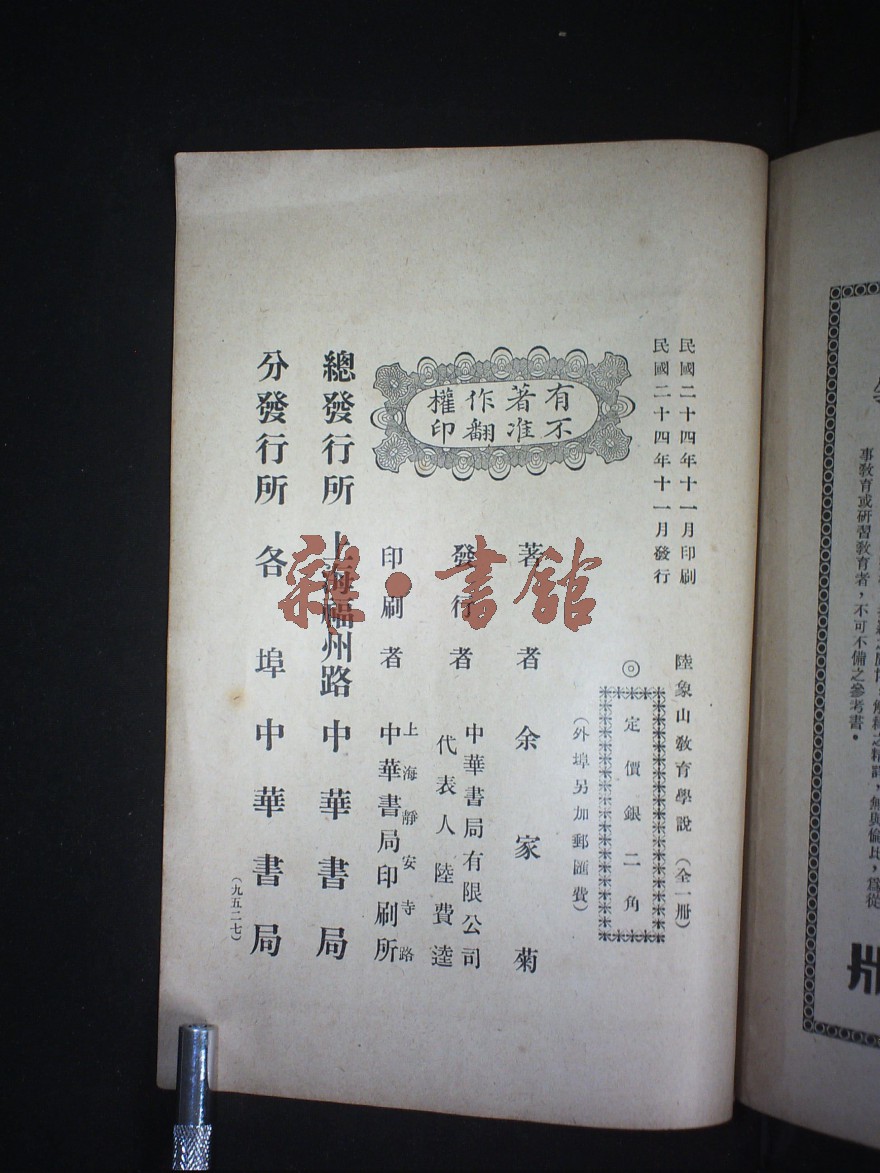 民國二十四年十一月印刷
民國二十四年十一月發行
陸象山敎育學說（全一册）
◎定價銀二角
（外埠另加郵匯費）
有著作權
不准翻印
著者 余家菊
發行者 中華書局有限公司
代表人陸費逵
印刷者 上海靜安寺路
中華書局印刷所
總發行所 上海福州路 中華書局
分發行所 各埠中華書局
（九五二七）
雜·書館
事敎育或研習敎育者，不可不備之參考書。
無與倫比，爲從